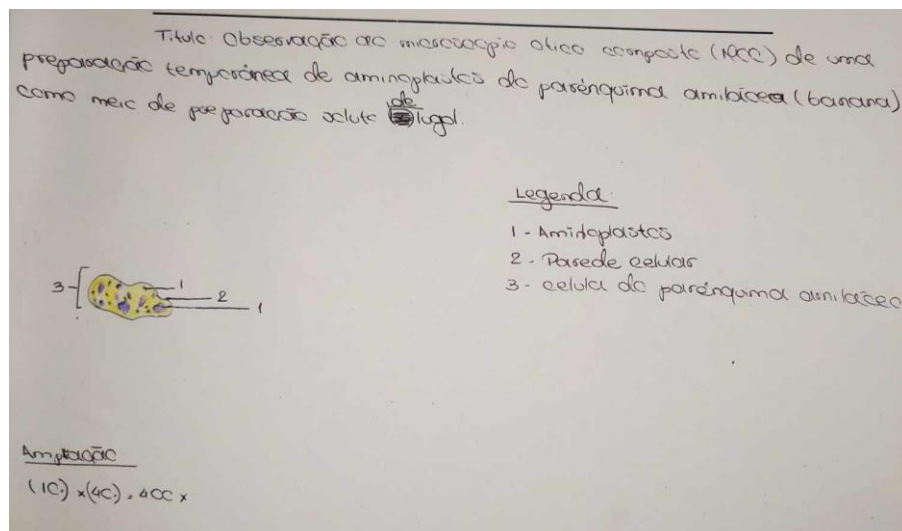 Titulo: Observação ao microscopio otico composto (MOC) de uma
preparação temporánea de aminoplastos do parénquima amiláceo (banana)
como meio de preparação soluto de lugol.
Legenda:
1 - Amidoplastos
2 - Parede celular
3 - celula do parénquima amiláceo
3
1
2
1
Ampliação
(10.) x (40.) = 400 x